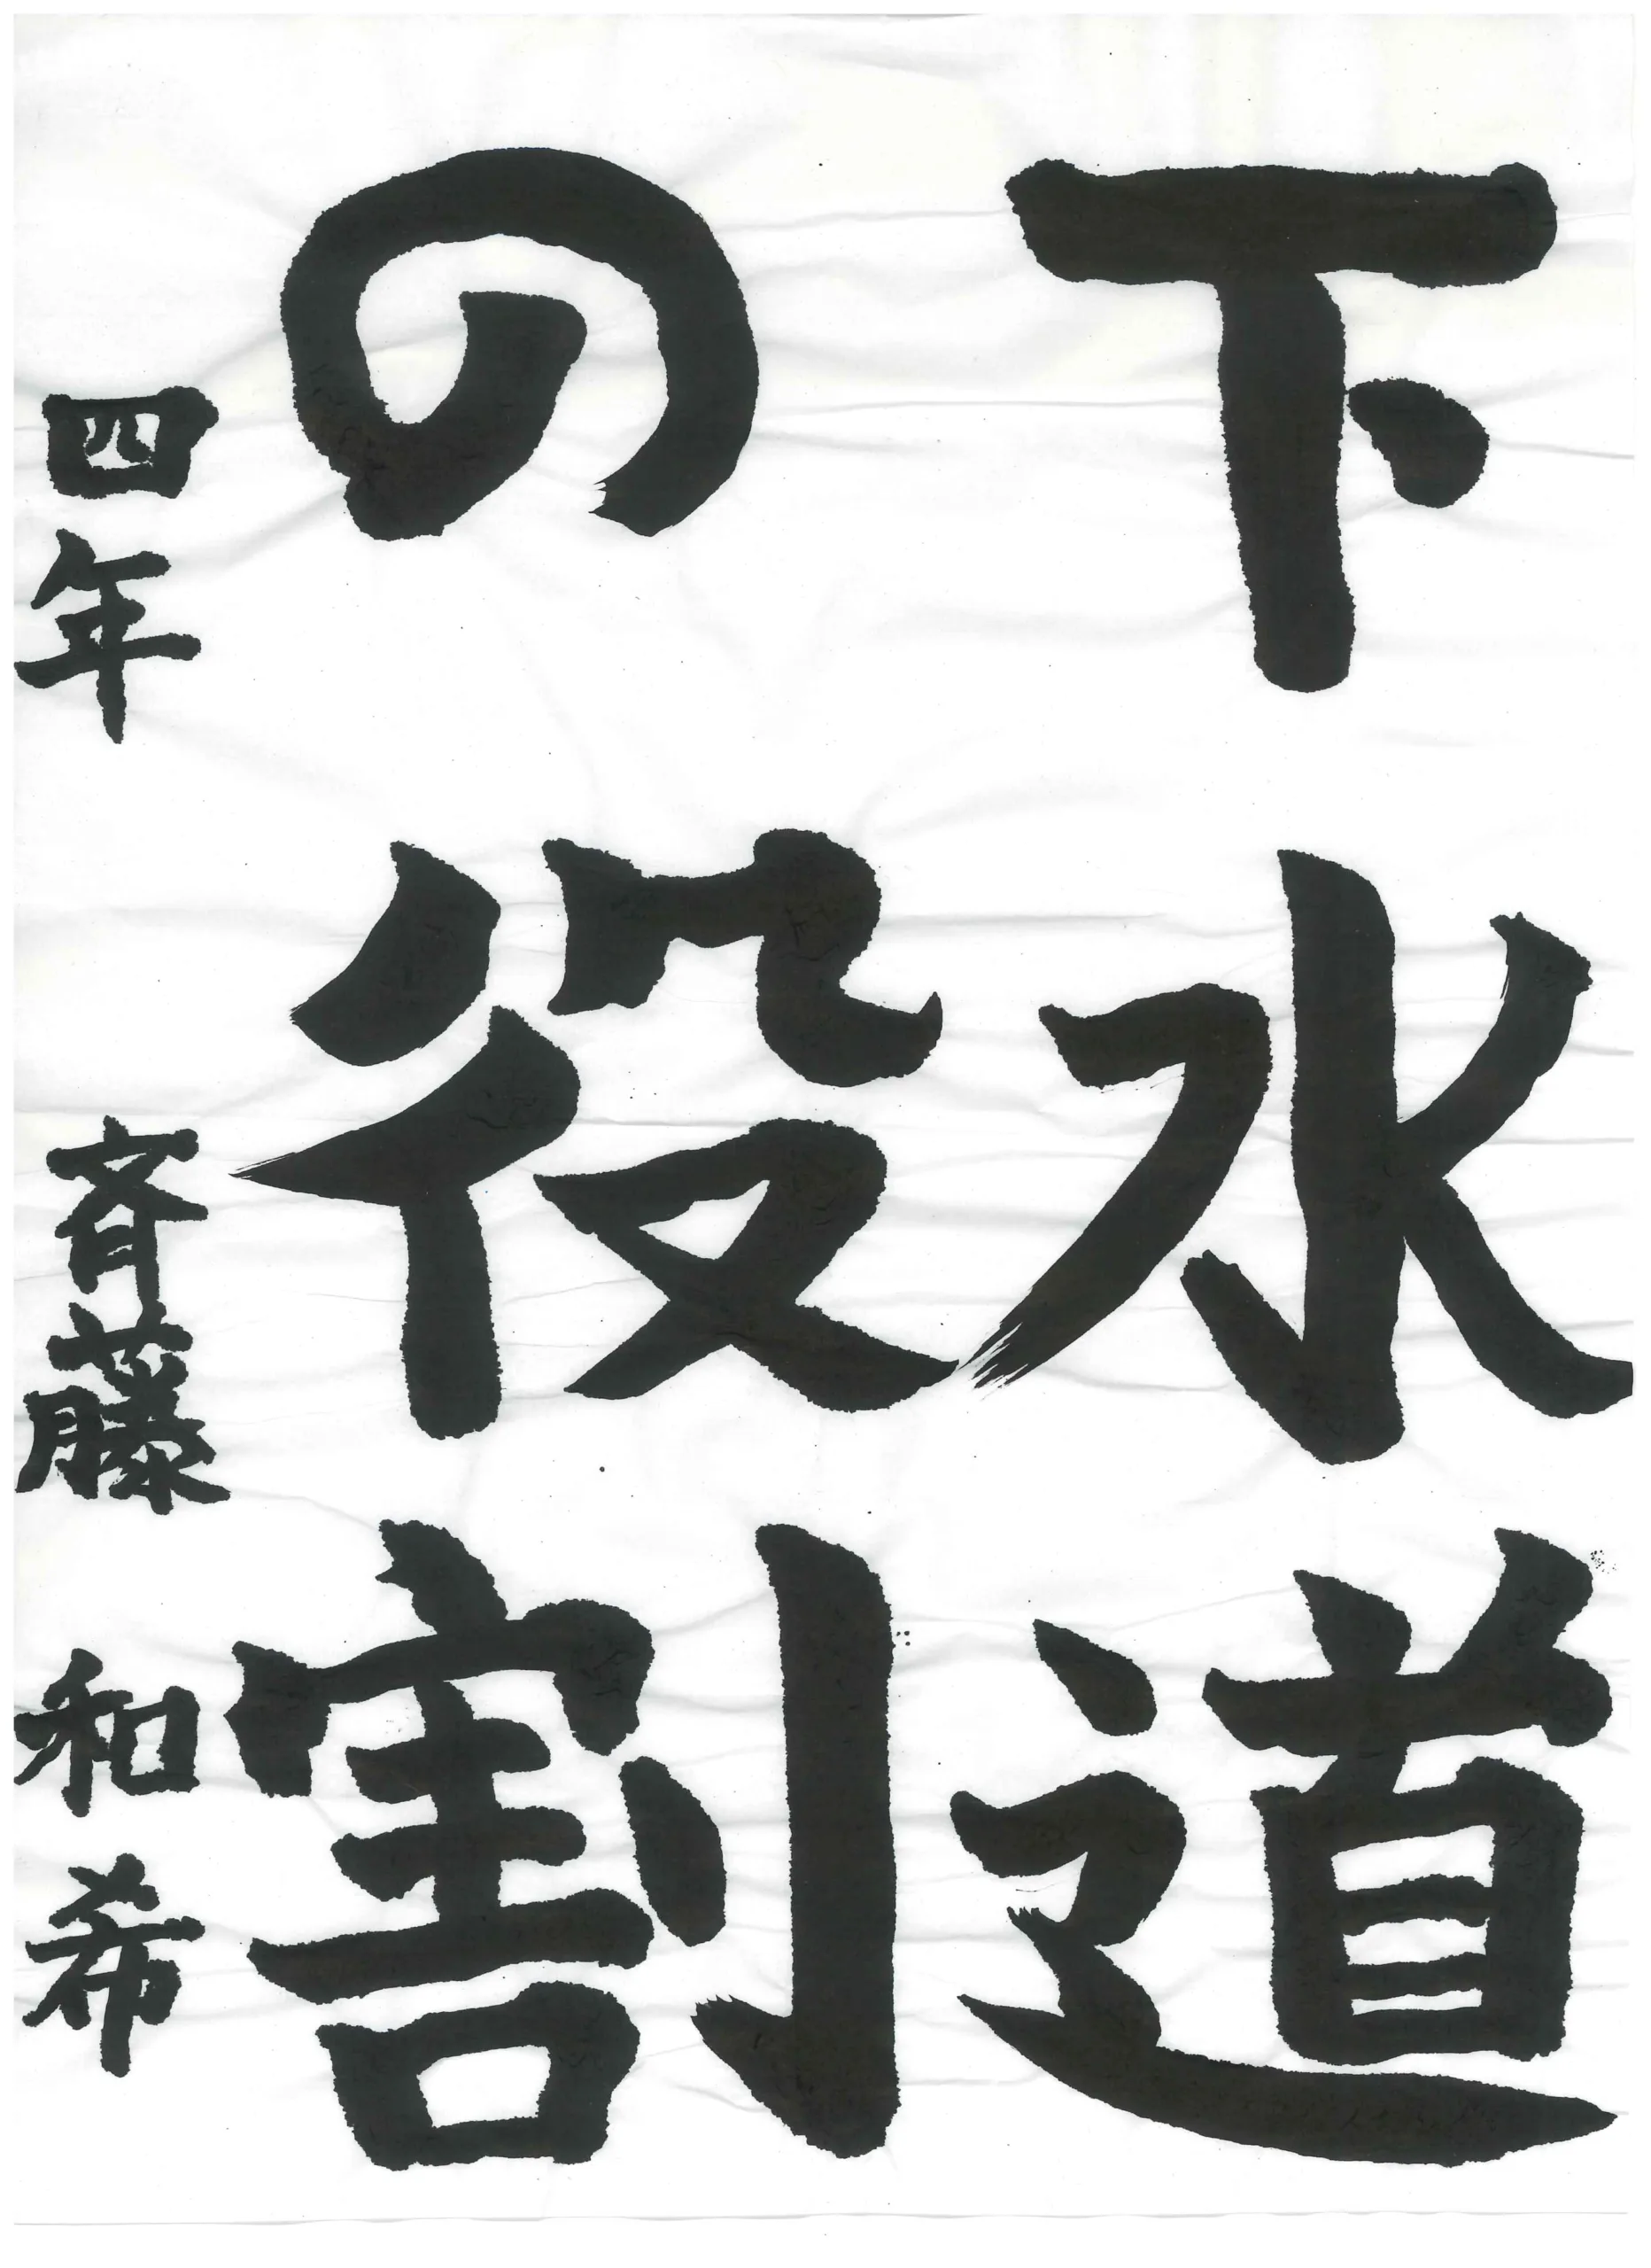 下水道
の役割
四年 斉藤和希